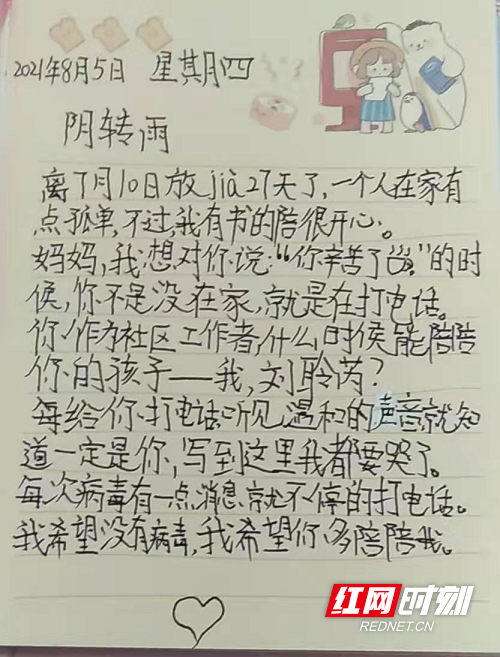 2021年8月5日 星期四
阴转雨
离7月10日放jià27天了,一个人在家有
点孤单,不过,我有书的陪很开心。
妈妈,我想对你说:“你辛苦了”的时
侯,你不是没在家,就是在打电话。
你作为社区工作者,什么时侯能陪陪
你的孩子——我,刘聆芮?
每给你打电话听见温和的声音就知
道一定是你,写到这里我都要哭了。
每次病毒有一点消息就不停的打电话。
我希望没有病毒,我希望你多陪陪我。
红网时刻
REDNET.CN